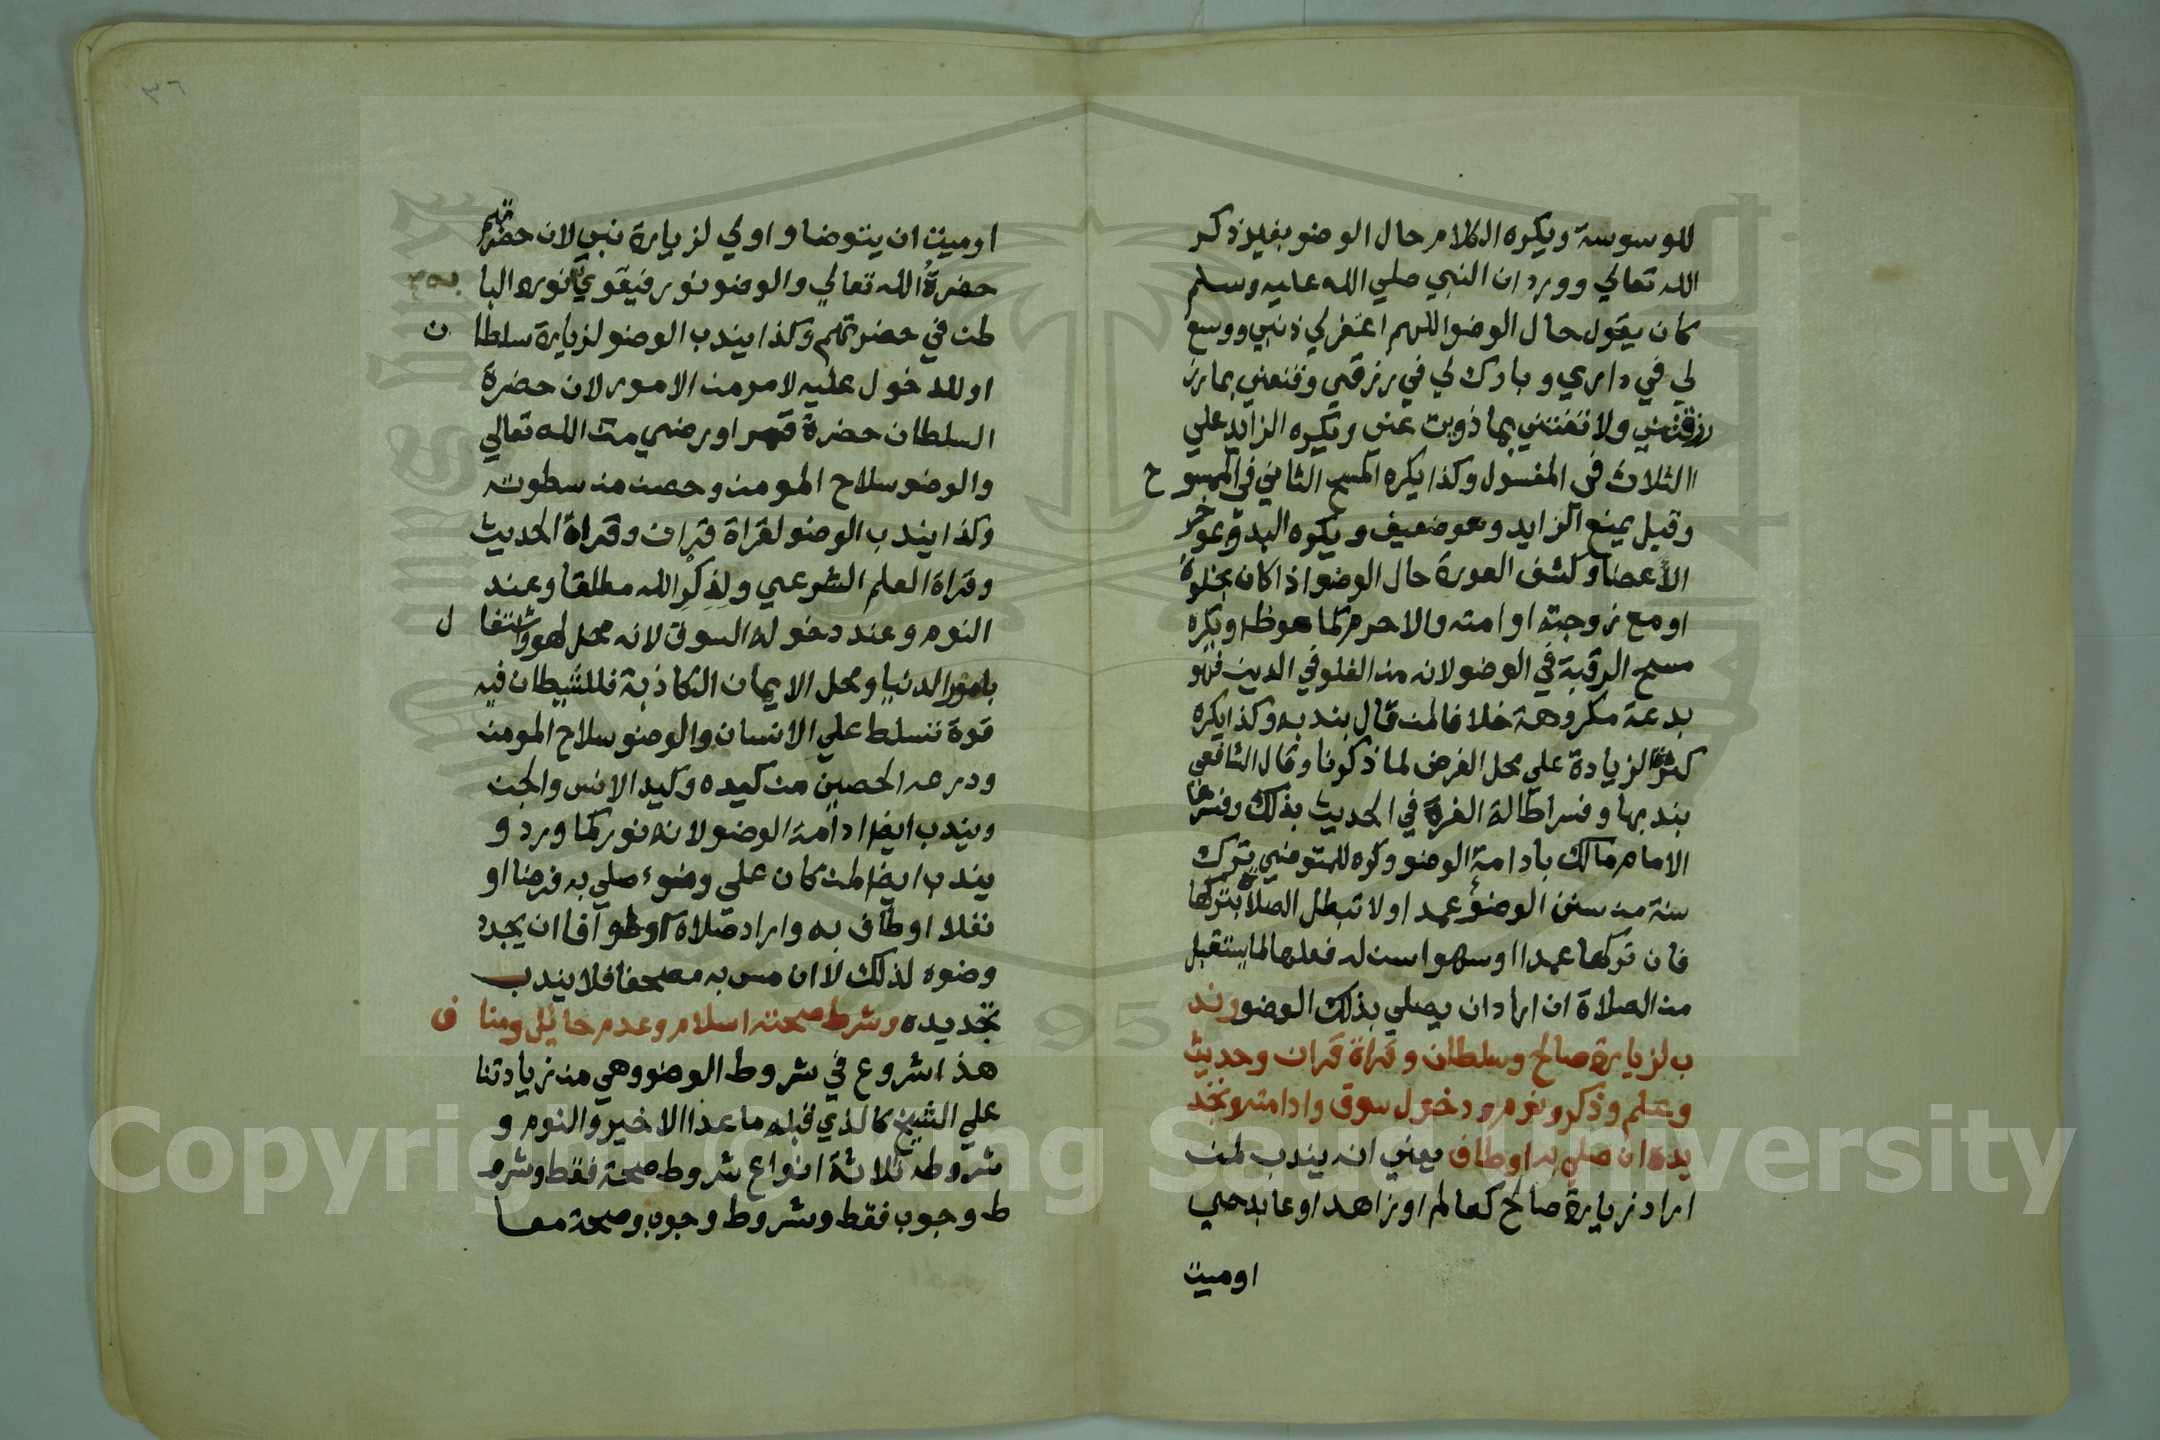 للوسوسة ويكره الكلام حال الوضو بغير ذكر
الله تعالي وورد ان النبي صلي الله عليه وسلم
كان يقول حال الوضو اللهم اغفر لي ذنبي ووسع
لي في داري وبارك لي في رزقي وقنعني بما رز
رزقتني ولا تفتني بما زويت عني ويكره الزايد علي
الثلاث في المغسول وكذا يكره المسح الثاني في الممسوح
وقيل يمنع الزايد وهو ضعيف ويكره البدو بموخر
الأعضا وكشف العورة حال الوضو اذا كان بخلوة
او مع زوجته او امته والا حرم كما هو ظ ويكره
مسح الرقبة في الوضو لانه من الغلو في الدين فهو
بدعة مكروهة خلافا لمن قال بندبه وكذا يكره
كثرة الزيادة علي محل الفرض لما ذكرنا وقال الشافعي
بندبها وفسر اطالة الغرة في الحديث بذلك وفسرها
الامام مالك بادامة الوضو وكره للمتوضي ترك
سنة من سنن الوضؤ عمدا ولا تبطل الصلاة بتركها
فان تركها عمدا او سهوا سن له فعلها لما يستقبل
من الصلاة ان اراد ان يصلي بذلك الوضو وند
ب لزيارة صالح وسلطان وقراة قران وحديث
وعلم وذكر ونوم ودخول سوق وادامته وتجد
يده ان صلي به او طاف يعني انه يندب لمن
اراد زيارة صالح كعالم او زاهد او عابد حي
اوميت
٣٦
اوميت ان يتوضا واولي لزيارة نبي لان حضرتهم
حضرةُ الله تعالي والوضو نور فيقوي نوره البا
طن في حضرتهم وكذا يندب الوضو لزيارة سلطان
او للدخول عليه لامر من الامور لان حضرة
السلطان حضرة قهر او رضي من الله تعالي
والوضو سلاح المومن وحصن من سطوته
وكذا يندب الوضو لقراة قران وقراة الحديث
وقراة العلم الشرعي ولِذِكْرِ الله مطلقا وعند
النوم وعند دخوله السوق لانه محل لهو واشتغال
بامور الدنيا ومحل الايمان الكاذبة فللشيطان فيه
قوة تسلط علي الانسان والوضو سلاح المومن
ودرعه الحصين من كيده وكيد الانس والجن
ويندب ايضا ادامة الوضو لانه نور كما ورد و
يندب ايضا لمن كان علي وضوء صلي به فرضا او
نفلا او طاف به واراد صلاة او طوافا ان يجدد
وضوه لذلك لا ان مس به مصحفا فلا يندب
تجديده وشرط صحته اسلام وعدم حائل ومناف
هذا شروع في شروط الوضو وهي من زيادتنا
علي الشيخ كالذي قبله ما عدا الاخير والنوم و
شروطه ثلاثة انواع شروط صحة فقط وشرو
ط وجوب فقط وشروط وجوب وصحة معا
Copyright © King Saud University